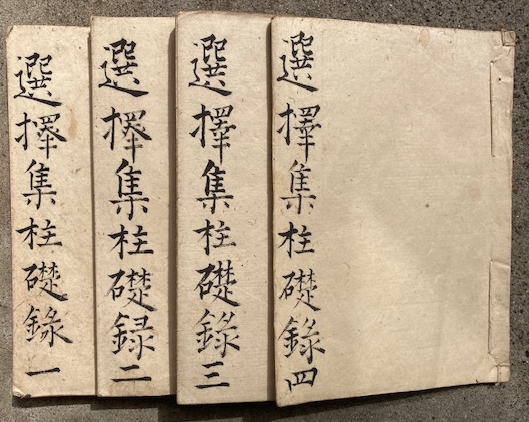 選擇集柱礎錄一
選擇集柱礎録二
選擇集柱礎錄三
選擇集柱礎錄四